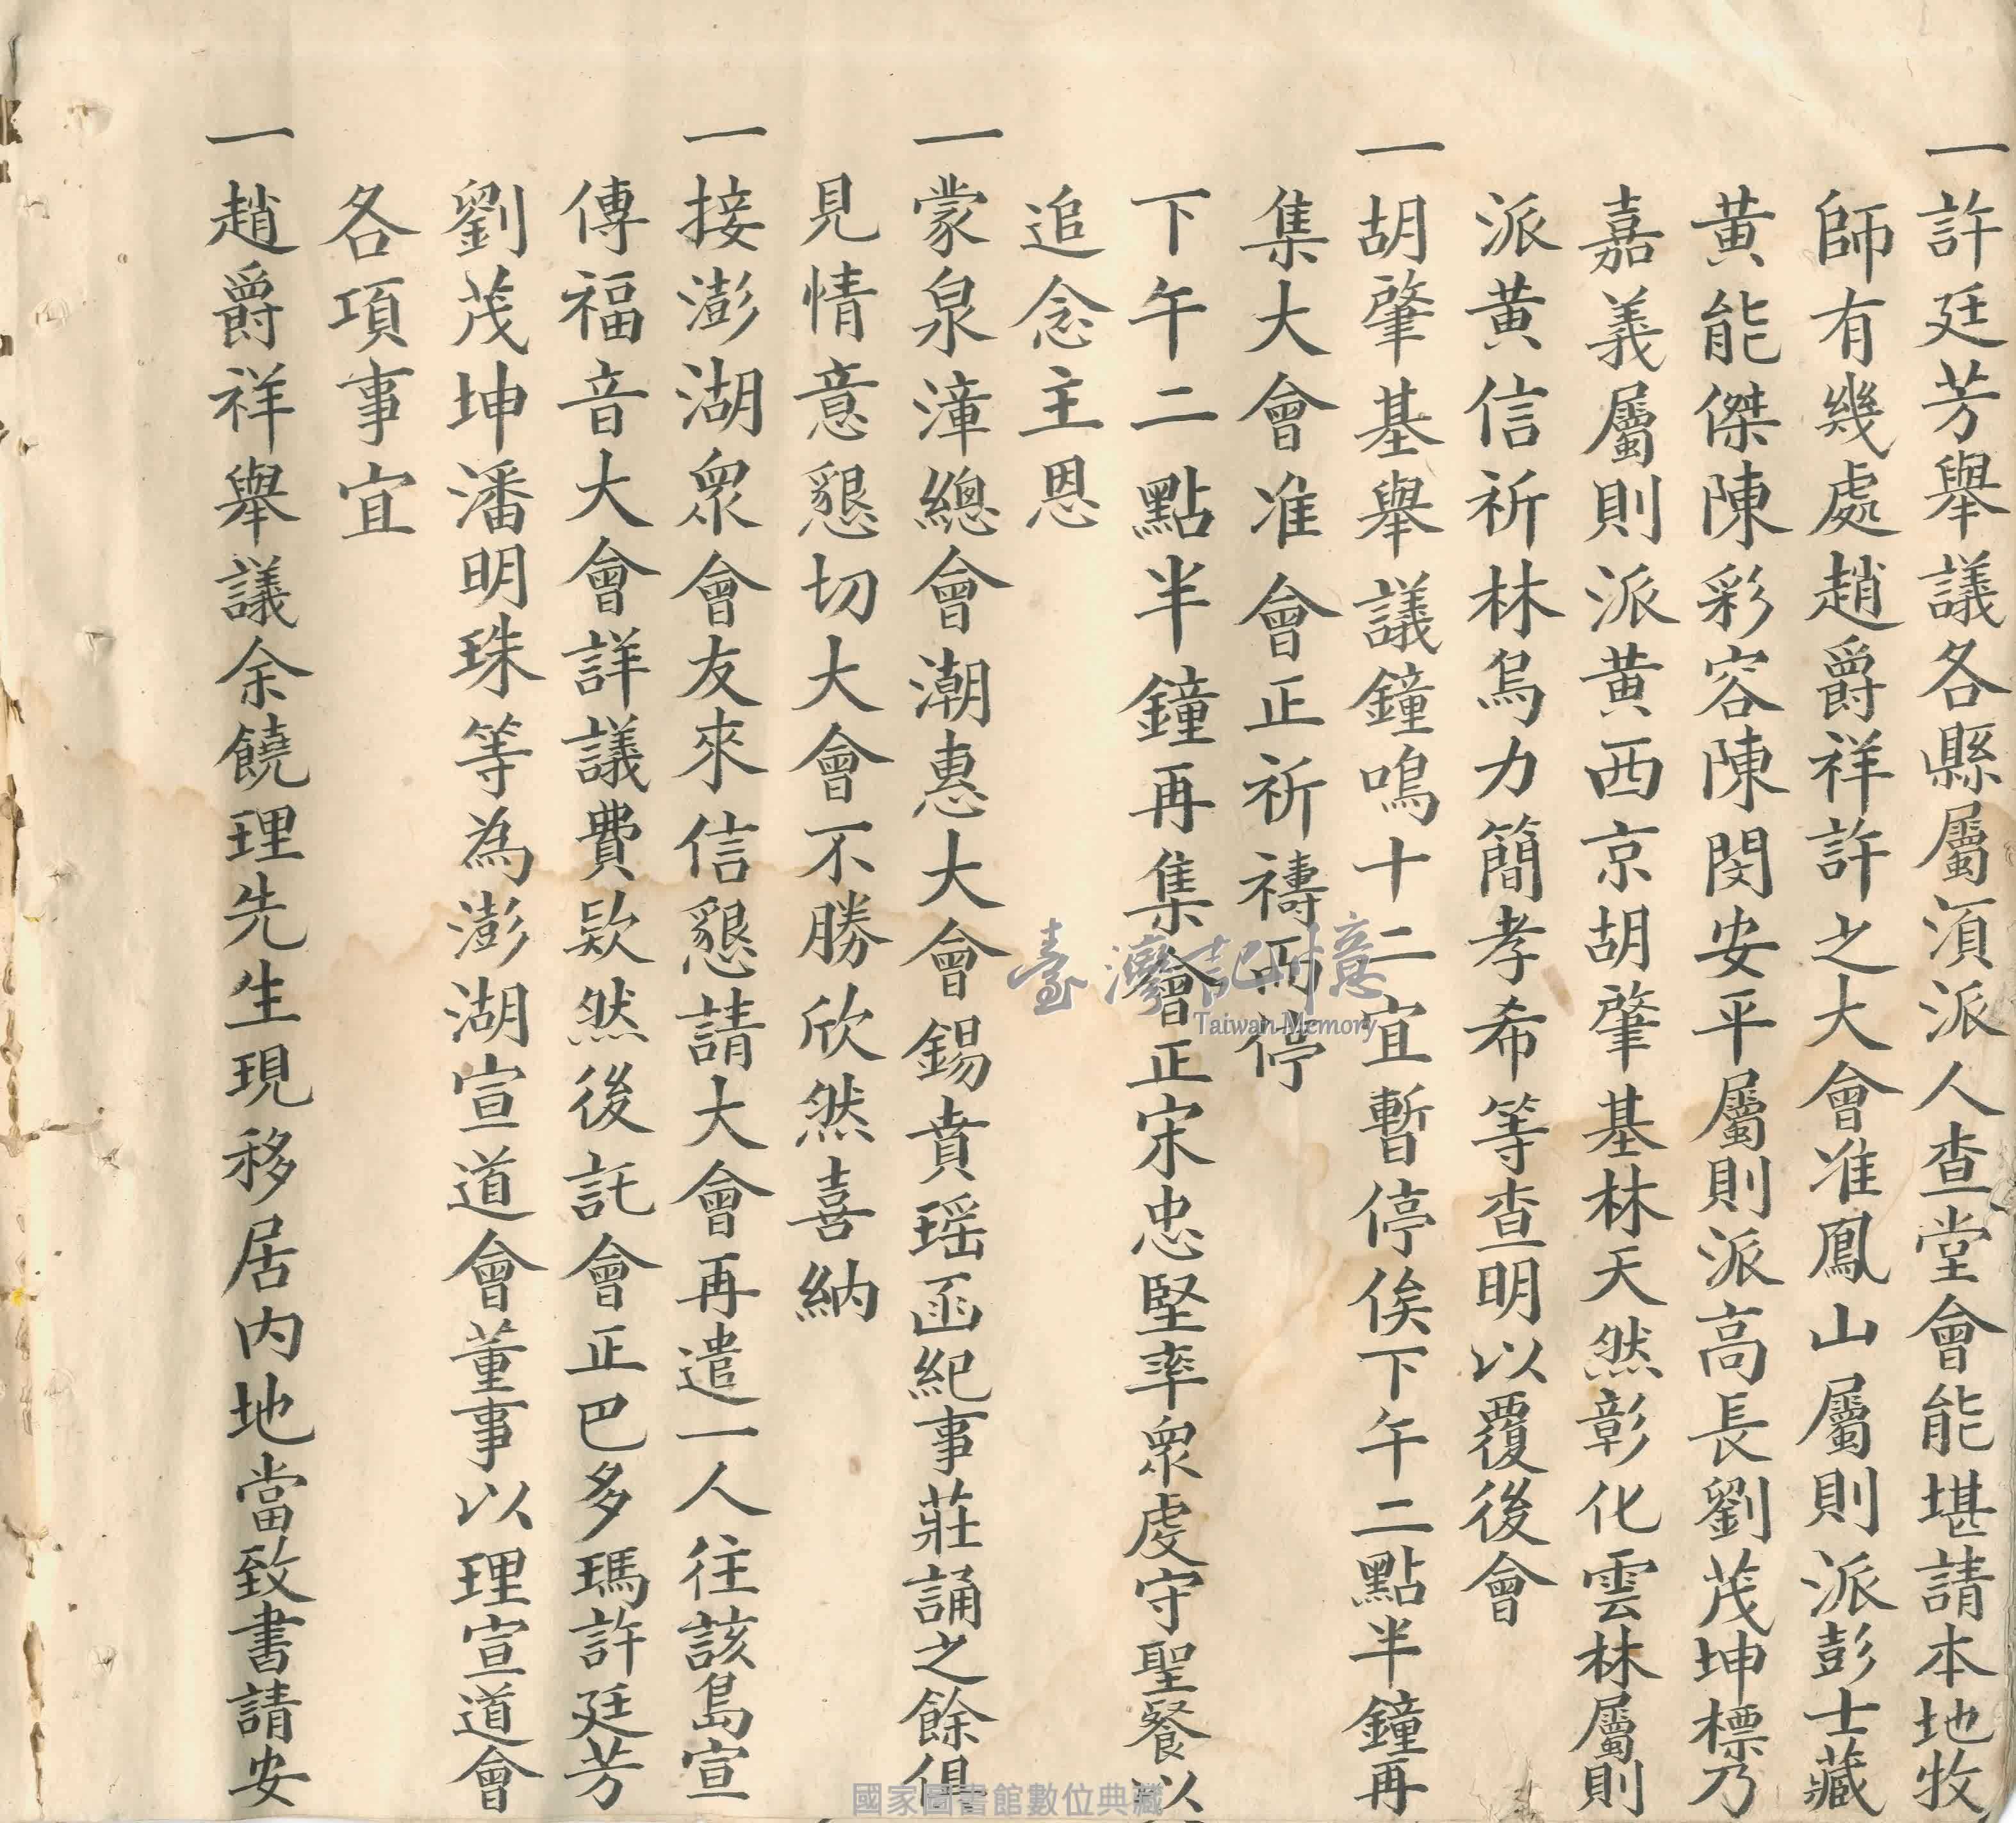 一許廷芳舉議各縣屬湏派人查堂會能堪請本地牧
師有幾處趙爵祥許之大會准鳳山屬則派彭士藏
黃能傑陳彩容陳閔安平屬則派高長劉茂坤標乃
嘉義屬則派黃西京胡肇基林天然彰化雲林屬則
派黃信祈林烏力簡孝希等查明以覆後會
一胡肇基舉議鐘鳴十二宜暫停俟下午二點半鐘再
集大會准會正祈禱而停
下午二點半鐘再集會正宋忠堅率眾虔守聖餐以
追念主恩
一蒙泉漳總會潮惠大會錫賁瑤函紀事莊誦之餘俱
見情意懇切大會不勝欣然喜納
一接澎湖眾會友來信懇請大會再遣一人往該島宣
傳福音大會詳議費欵然後託會正巴多瑪許廷芳
劉茂坤潘明珠等為澎湖宣道會董事以理宣道會
各項事宜
一趙爵祥舉議余饒理先生現移居内地當致書請安
臺灣記憶
Taiwan Memory
國家圖書館數位典藏